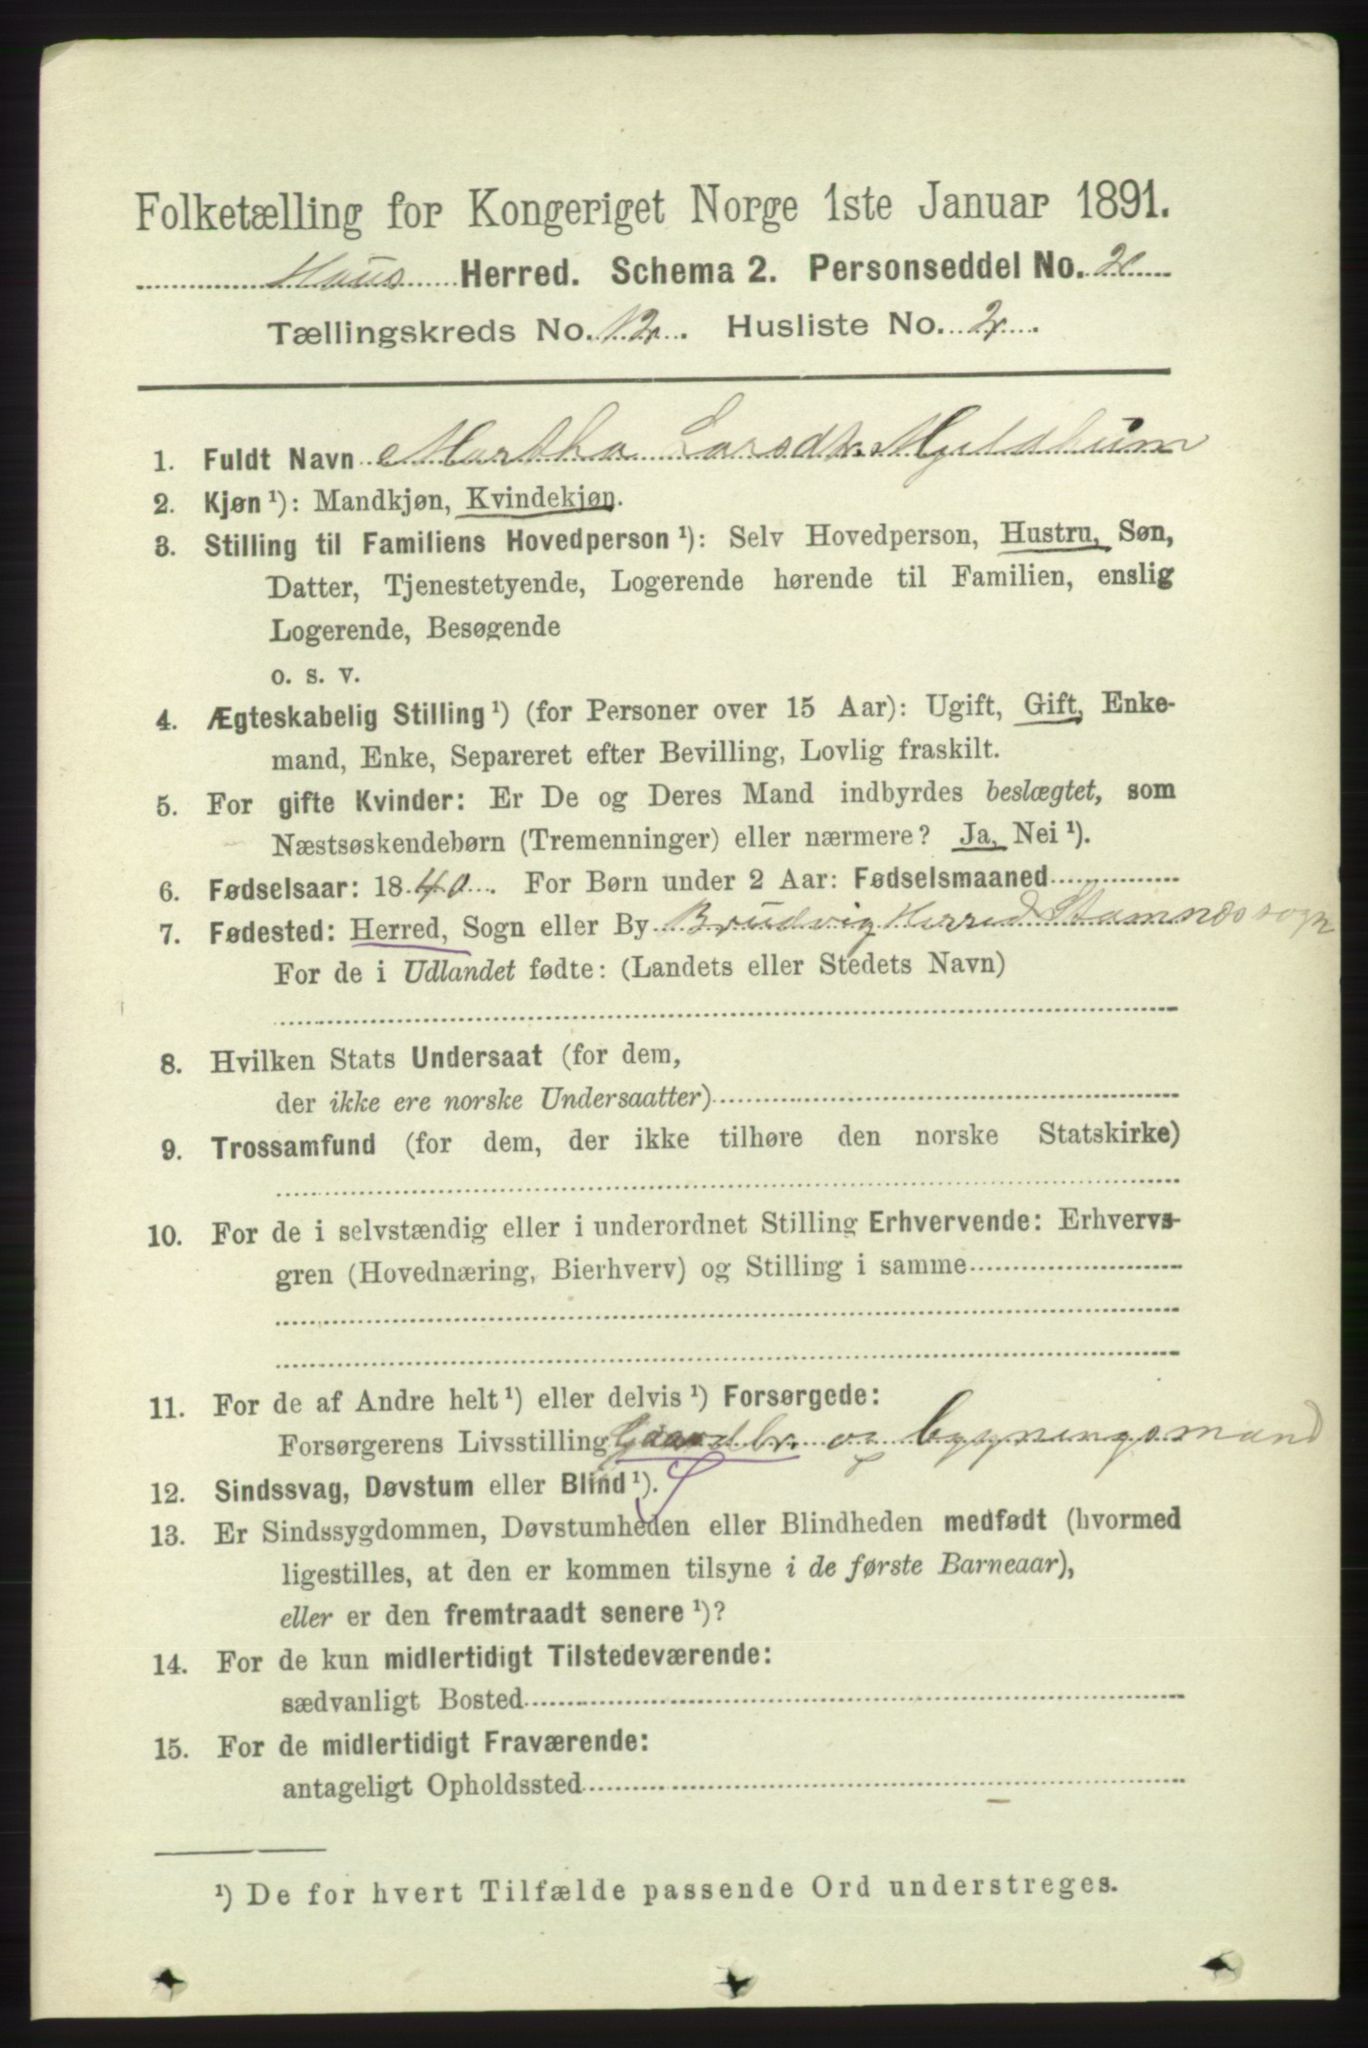 Folketælling for Kongeriget Norge 1ste Januar 1891.
Haus Herred. Schema 2. Personseddel No. 2
Tællingskreds No. 12. Husliste No. 2.
1. Fuldt Navn Martha Larsdtr. Mjeldheim
2. Kjøn ¹): Mandkjøn, Kvindekjøn.
3. Stilling til Familiens Hovedperson ¹): Selv Hovedperson, Hustru, Søn,
Datter, Tjenestetyende, Logerende hørende til Familien, enslig
Logerende, Besøgende
o. s. v.
4. Ægteskabelig Stilling ¹) (for Personer over 15 Aar): Ugift, Gift, Enke-
mand, Enke, Separeret efter Bevilling, Lovlig fraskilt.
5. For gifte Kvinder: Er De og Deres Mand indbyrdes beslægtet, som
Næstsøskendebørn (Tremenninger) eller nærmere? Ja, Nei ¹).
6. Fødselsaar: 1840. For Børn under 2 Aar: Fødselsmaaned
7. Fødested: Herred, Sogn eller By Brudvig Herred Stamnes sogn
For de i Udlandet fødte: (Landets eller Stedets Navn)
8. Hvilken Stats Undersaat (for dem,
der ikke ere norske Undersaatter)
9. Trossamfund (for dem, der ikke tilhøre den norske Statskirke)
10. For de i selvstændig eller i underordnet Stilling Erhvervende: Erhvervs-
gren (Hovednæring, Bierhverv) og Stilling i samme
11. For de af Andre helt ¹) eller delvis ¹) Forsørgede:
Forsørgerens Livsstilling Gaardbr. og bygningsmand
12. Sindssvag, Døvstum eller Blind ¹).
13. Er Sindssygdommen, Døvstumheden eller Blindheden medfødt (hvormed
ligestilles, at den er kommen tilsyne i de første Barneaar),
eller er den fremtraadt senere ¹)?
14. For de kun midlertidigt Tilstedeværende:
sædvanligt Bosted
15. For de midlertidigt Fraværende:
antageligt Opholdssted
¹) De for hvert Tilfælde passende Ord understreges.